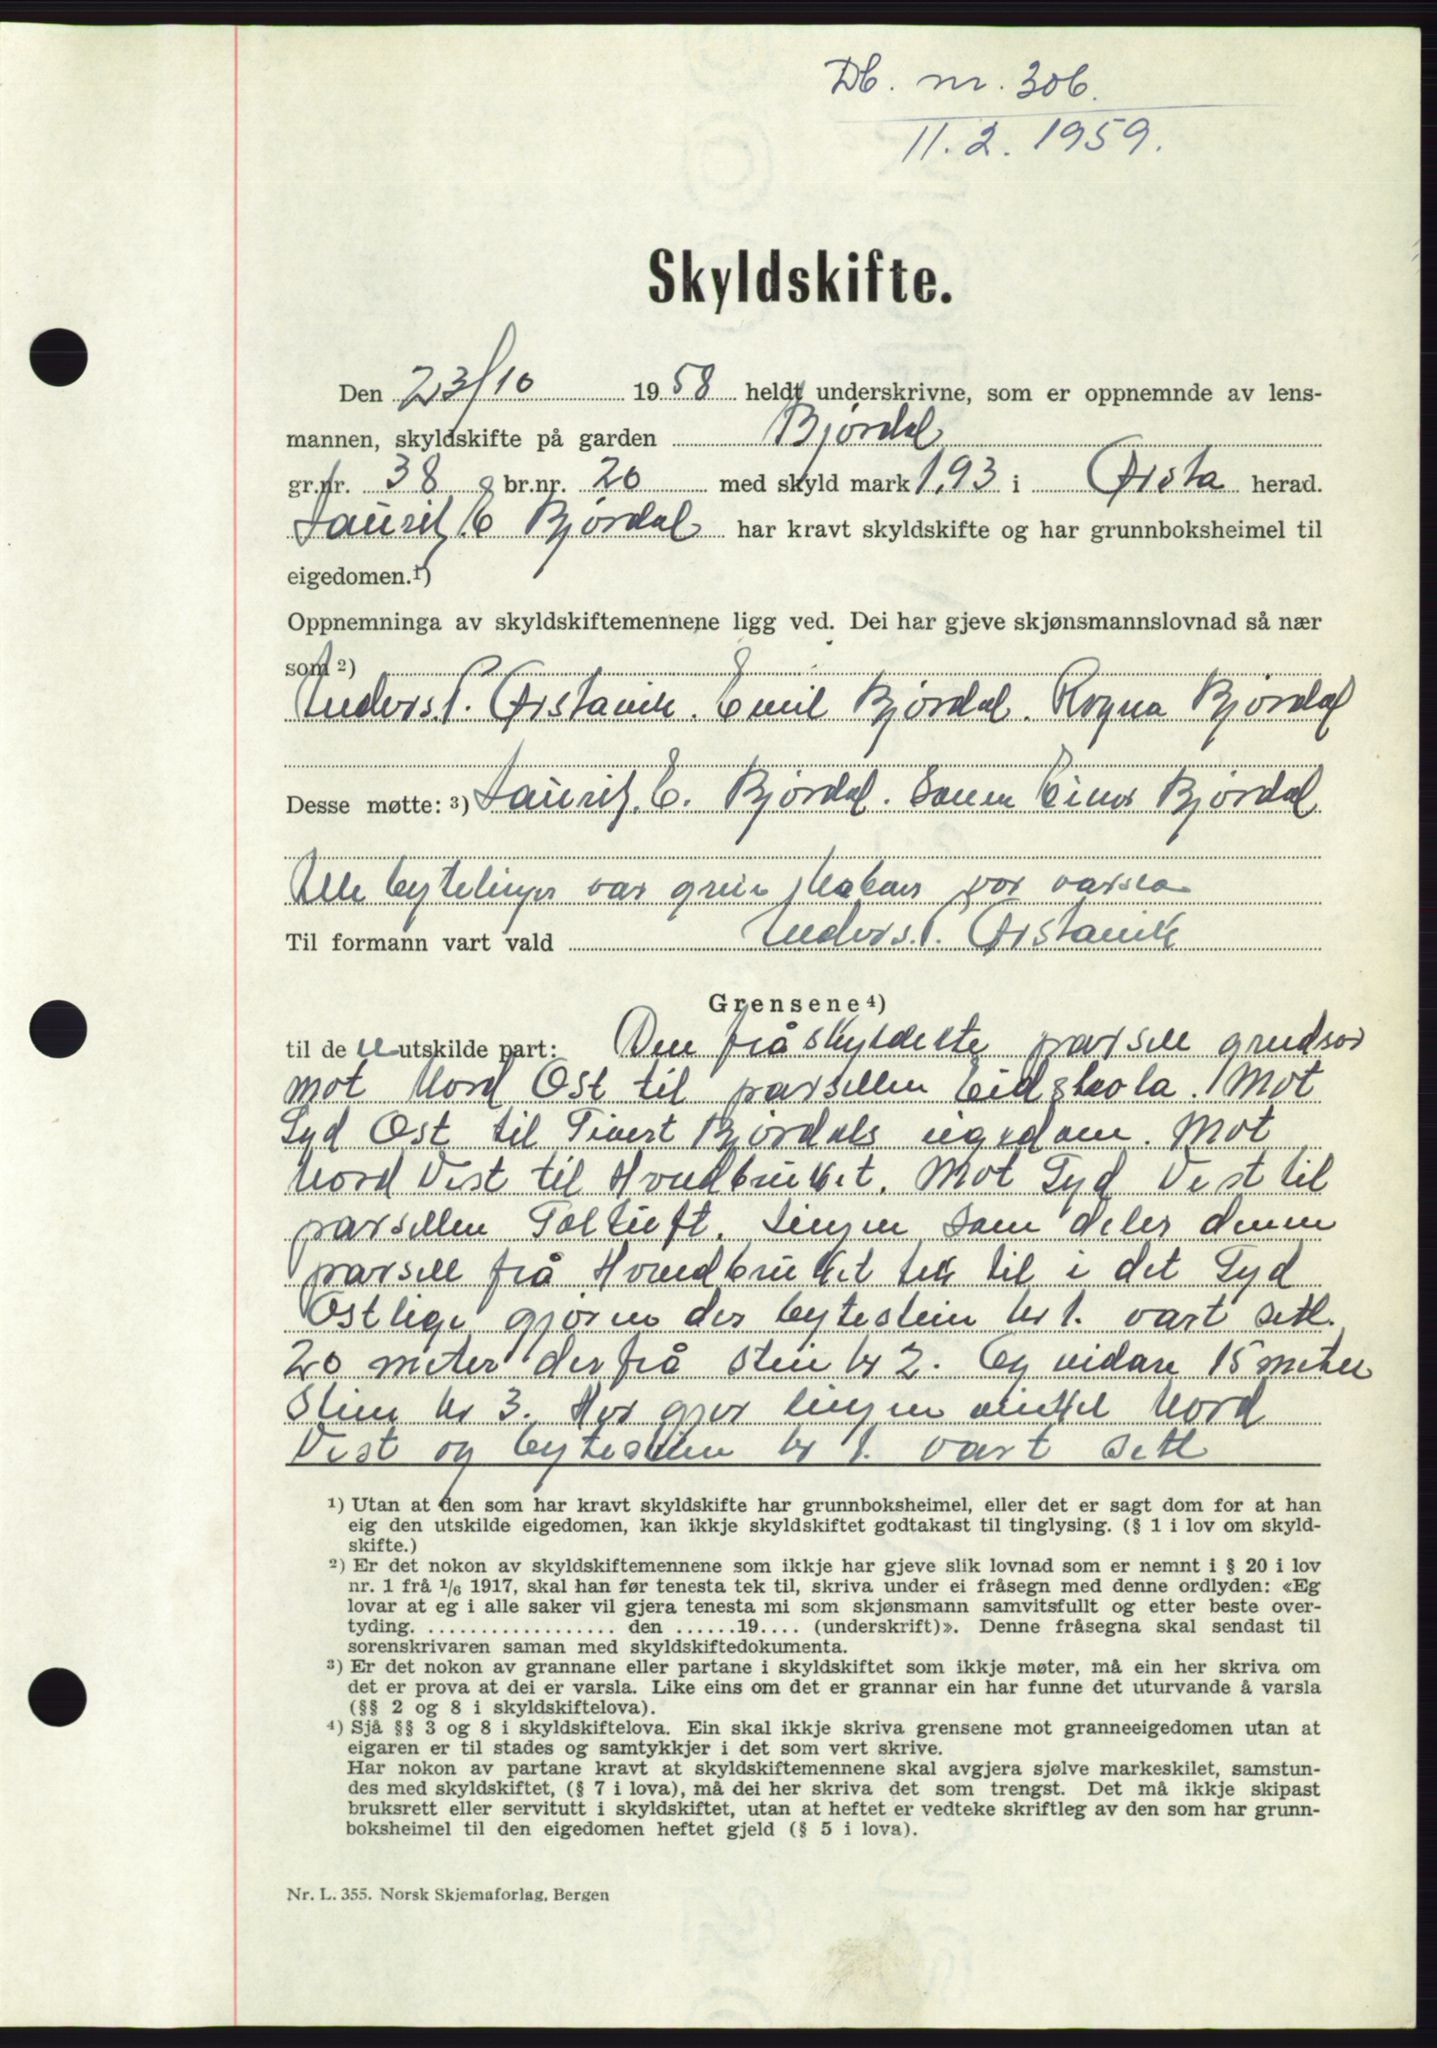 Db. nr. 306.
11.2.1959.
Skyldskifte.
Den 23/10 1958 heldt underskrivne, som er oppnemnde av lens-
mannen, skyldskifte på garden Bjørdal
gr.nr. 38 br.nr. 20 med skyld mark 1,93 i Ørsta herad.
Laurit. E Bjørdal har kravt skyldskifte og har grunnboksheimel til
eigedomen.1)
Oppnemninga av skyldskiftemennene ligg ved. Dei har gjeve skjønsmannslovnad så nær
som 2)
Anders. P. Ørstavik. Emil Bjørdal. Rogna Bjørdal
Desse møtte: 3) Laurit. E. Bjørdal. Einar Bjørdal
Alle bytelinjer var var varsla
Til formann vart vald Anders. P. Ørstavik
Grensene 4)
til de n utskilde part: Den fråskyldelte parsell grensar
mot Nord Ost til parsellen Eidskola. Mot
Syd Ost til Sivert Bjørdals eigedom. Mot
Nord Vest til Hovedbruket. Mot Syd Vest til
parsellen Soltuft. Linjen som deler denne
parsell frå Hovedbruket tek til i det Syd
Ostlige gjørne der bytestein Nr 1. vart sett.
20 meter derfrå stein Nr 2. Og vidare 15 meter
Stein Nr 3. Her gjer linjen vinkel Nord
Vest og bytestein Nr 1. vart sett
1) Utan at den som har kravt skyldskifte har grunnboksheimel, eller det er sagt dom for at han
eig den utskilde eigedomen, kan ikkje skyldskiftet godtakast til tinglysing. (§ 1 i lov om skyld-
skifte.)
2) Er det nokon av skyldskiftemennene som ikkje har gjeve slik lovnad som er nemnt i § 20 i lov
nr. 1 frå 1/6 1917, skal han før tenesta tek til, skriva under ei fråsegn med denne ordlyden: «Eg
lovar at eg i alle saker vil gjera tenesta mi som skjønsmann samvitsfullt og etter beste over-
tyding. .................. den ......19.... (underskrift)». Denne fråsegna skal sendast til
sorenskrivaren saman med skyldskiftedokumenta.
3) Er det nokon av grannane eller partane i skyldskiftet som ikkje møter, må ein her skriva om
det er prova at dei er varsla. Like eins om det er grannar ein har funne det uturvande å varsla
(§§ 2 og 8 i skyldskiftelova).
4) Sjå §§ 3 og 8 i skyldskiftelova. Ein skal ikkje skriva grensene mot granneeigedomen utan at
eigaren er til stades og samtykkjer i det som vert skrive.
Har nokon av partane kravt at skyldskiftemennene skal avgjera sjølve markeskilet, samstun-
des med skyldskiftet, (§ 7 i lova), må dei her skriva det som trengst. Det må ikkje skipast
bruksrett eller servitutt i skyldskiftet, utan at heftet er vedteke skriftleg av den som har grunn-
boksheimel til den eigedomen heftet gjeld (§ 5 i lova).
Nr. L. 355. Norsk Skjemaforlag, Bergen